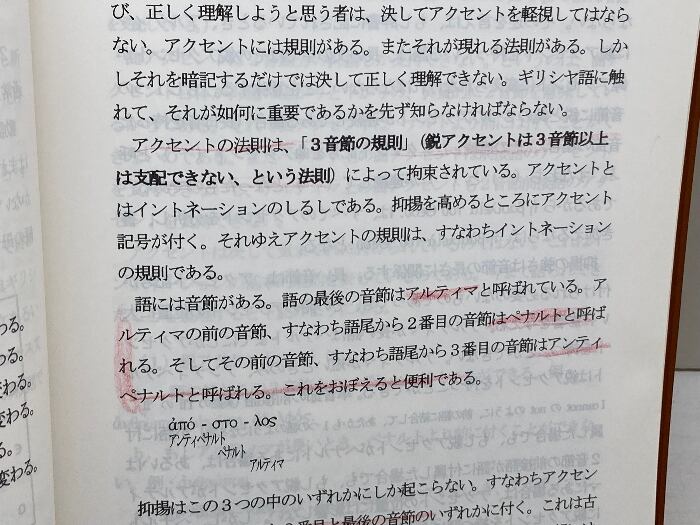 び、正しく理解しようと思う者は、決してアクセントを軽視してはなら
ない。アクセントには規則がある。またそれが現れる法則がある。しか
しそれを暗記するだけでは決して正しく理解できない。ギリシヤ語に触
れて、それが如何に重要であるかを先ず知らなければならない。
アクセントの法則は、「３音節の規則」(鋭アクセントは３音節以上
は支配できない、という法則) によって拘束されている。アクセントと
はイントネーションのしるしである。抑揚を高めるところにアクセント
記号が付く。それゆえアクセントの規則は、すなわちイントネーション
の規則である。
語には音節がある。語の最後の音節はアルティマと呼ばれている。ア
ルティマの前の音節、すなわち語尾から２番目の音節はペナルトと呼ば
れる。そしてその前の音節、すなわち語尾から３番目の音節はアンティ
ペナルトと呼ばれる。これをおぼえると便利である。
ἀπό - στο - λος
アンティペナルト
ペナルト
アルティマ
抑揚はこの３つの中のいずれかにしか起こらない。すなわちアクセン
番目と最後の音節のいずれかに付く。これは古
わる。
わる。
変わる。
変わる。
る。
変わる。